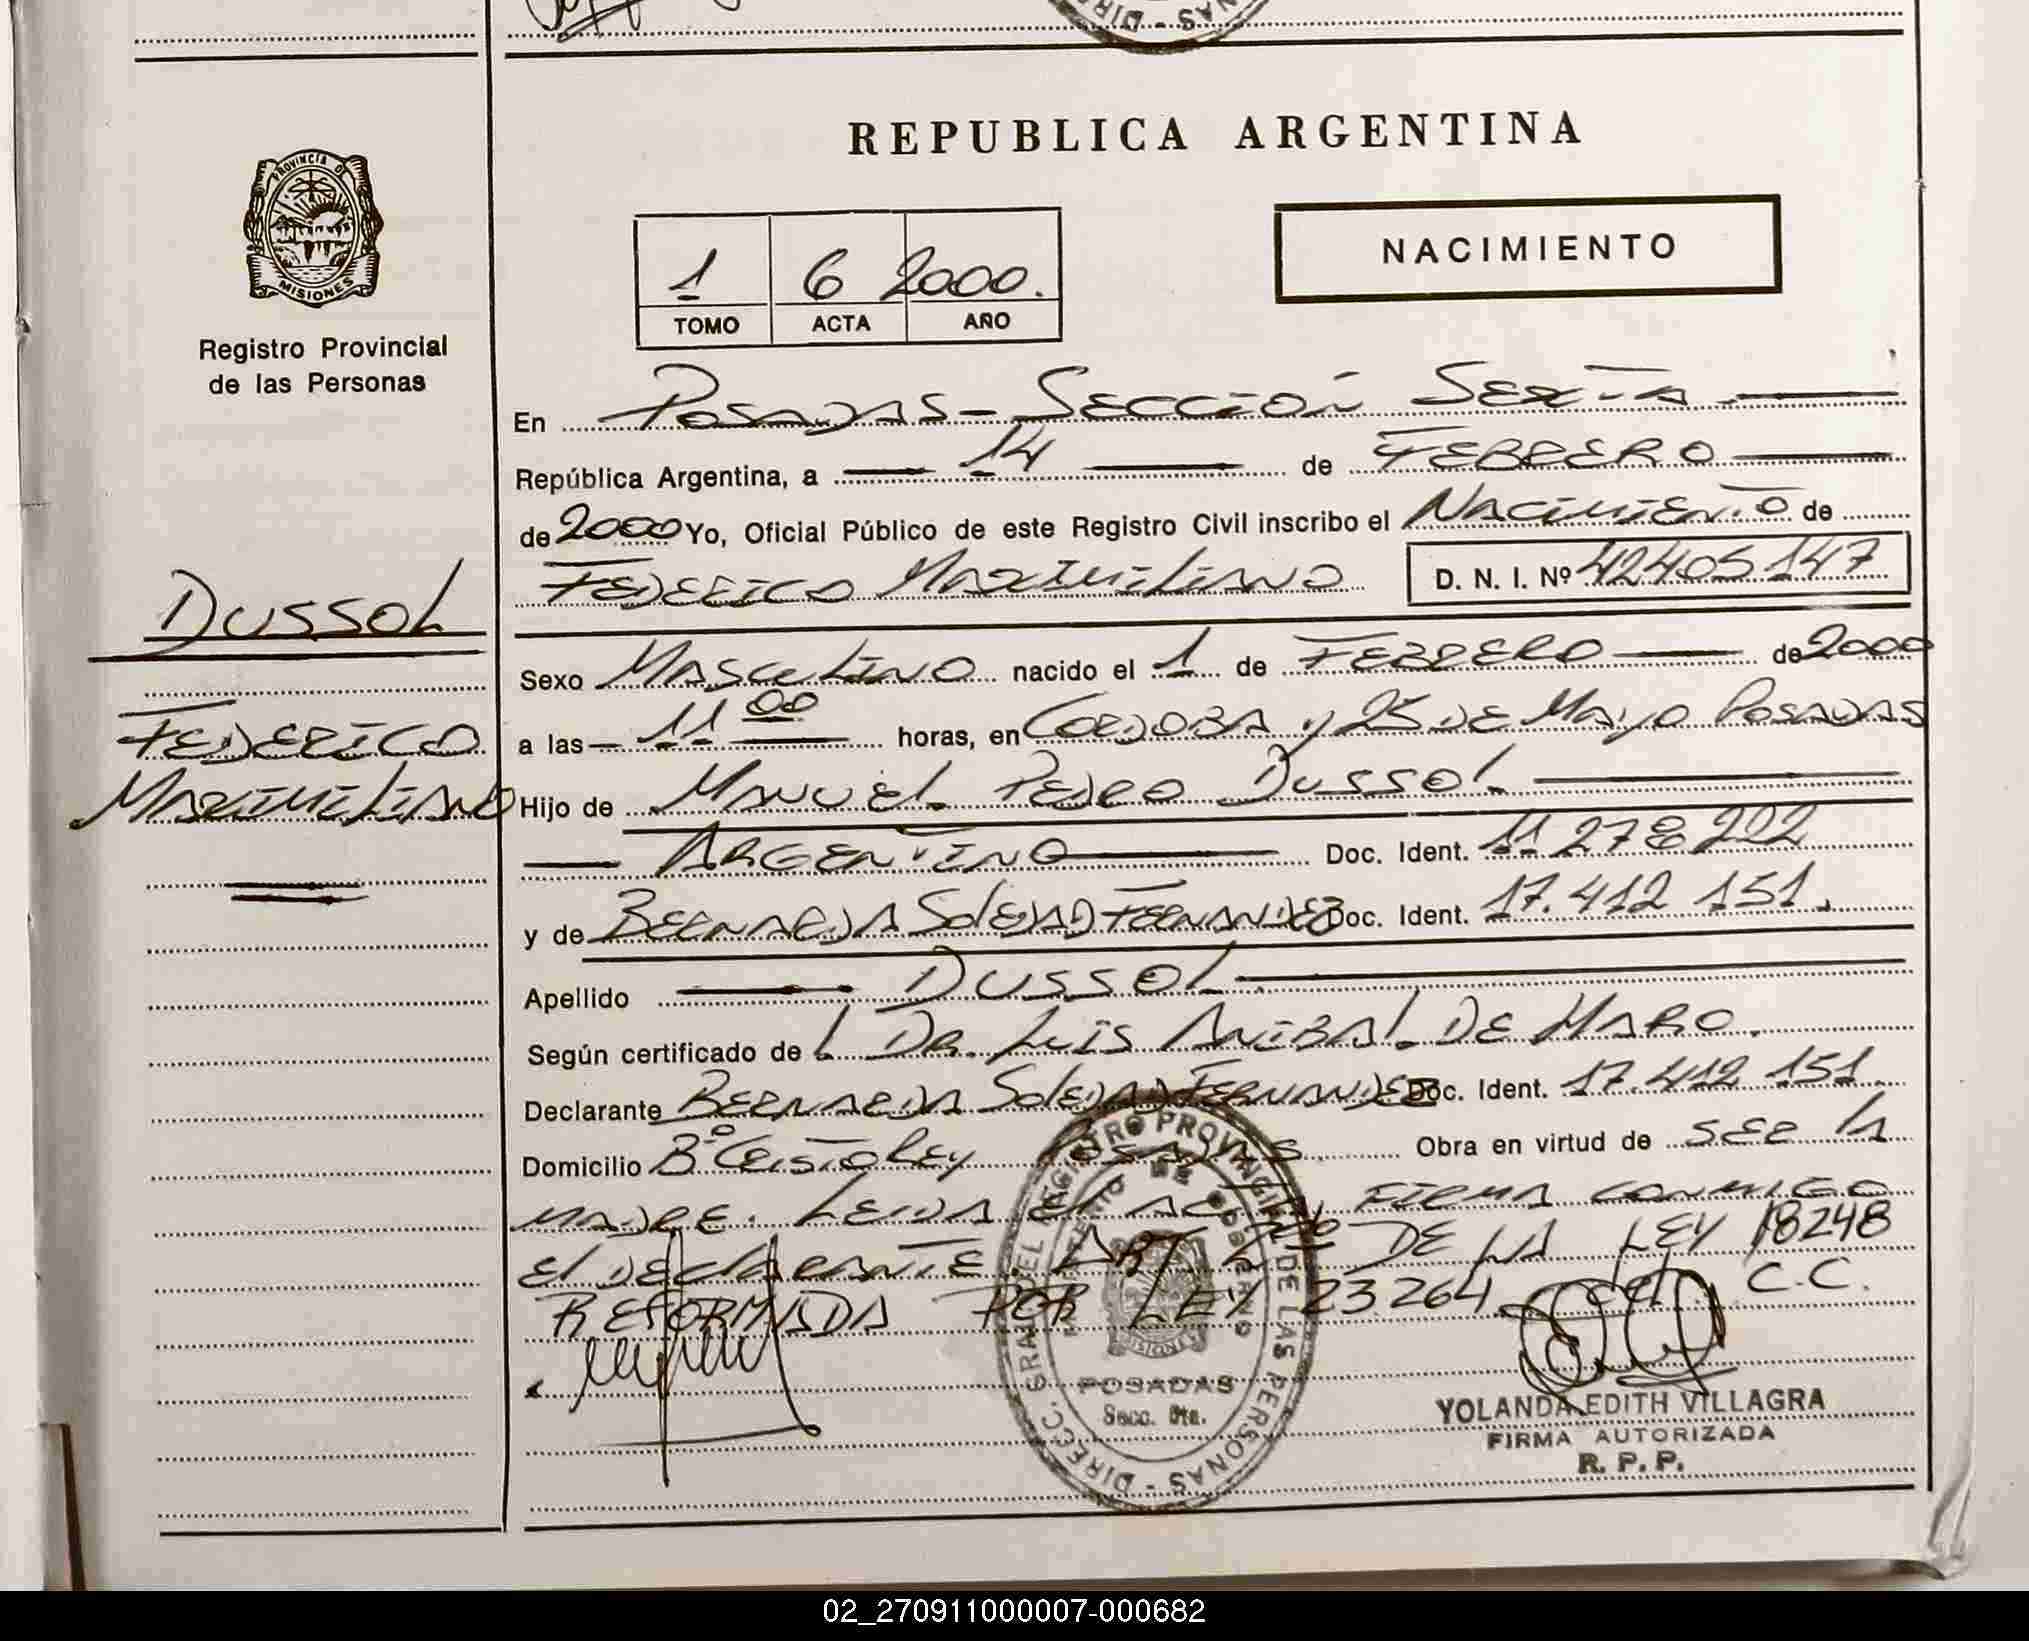 REPUBLICA ARGENTINA
PROVINCIA DE
MISIONES
Registro Provincial
de las Personas
1 6 2000.
TOMO ACTA AÑO
NACIMIENTO
En Posadas - Sección Sexta
República Argentina, a 14 de Febrero
de 2000 Yo, Oficial Público de este Registro Civil inscribo el Nacimiento de
Federico Maximiliano D. N. I. Nº 42405147
Dussol
Federico
Maximiliano
Sexo Masculino nacido el 1 de Febrero de 2000
a las 11 00 horas, en Cordoba y 25 de Mayo Posadas
Hijo de Manuel Pedro Dussol
Argentino Doc. Ident. 11 278 222
y de Bernarda Soledad Fernandez Doc. Ident. 17.412 151.
Apellido Dussol
Según certificado de l Dr. Luis Anibal De Haro.
Declarante Bernarda Soledad Fernandez Doc. Ident. 17.412 151.
Domicilio Bº Cristo Rey Posadas. Obra en virtud de ser la
madre. Leida el acta, firma conmigo
el declarante. ART 2 DE LA LEY 18248
REFORMADA POR LEY 23.264 del C.C.
DIRECC. GRAL DEL REGISTRO PROVINCIAL DE LAS PERSONAS
MISIONES
POSADAS
Secc. 6ta.
YOLANDA EDITH VILLAGRA
FIRMA AUTORIZADA
R. P. P.
02_270911000007-000682